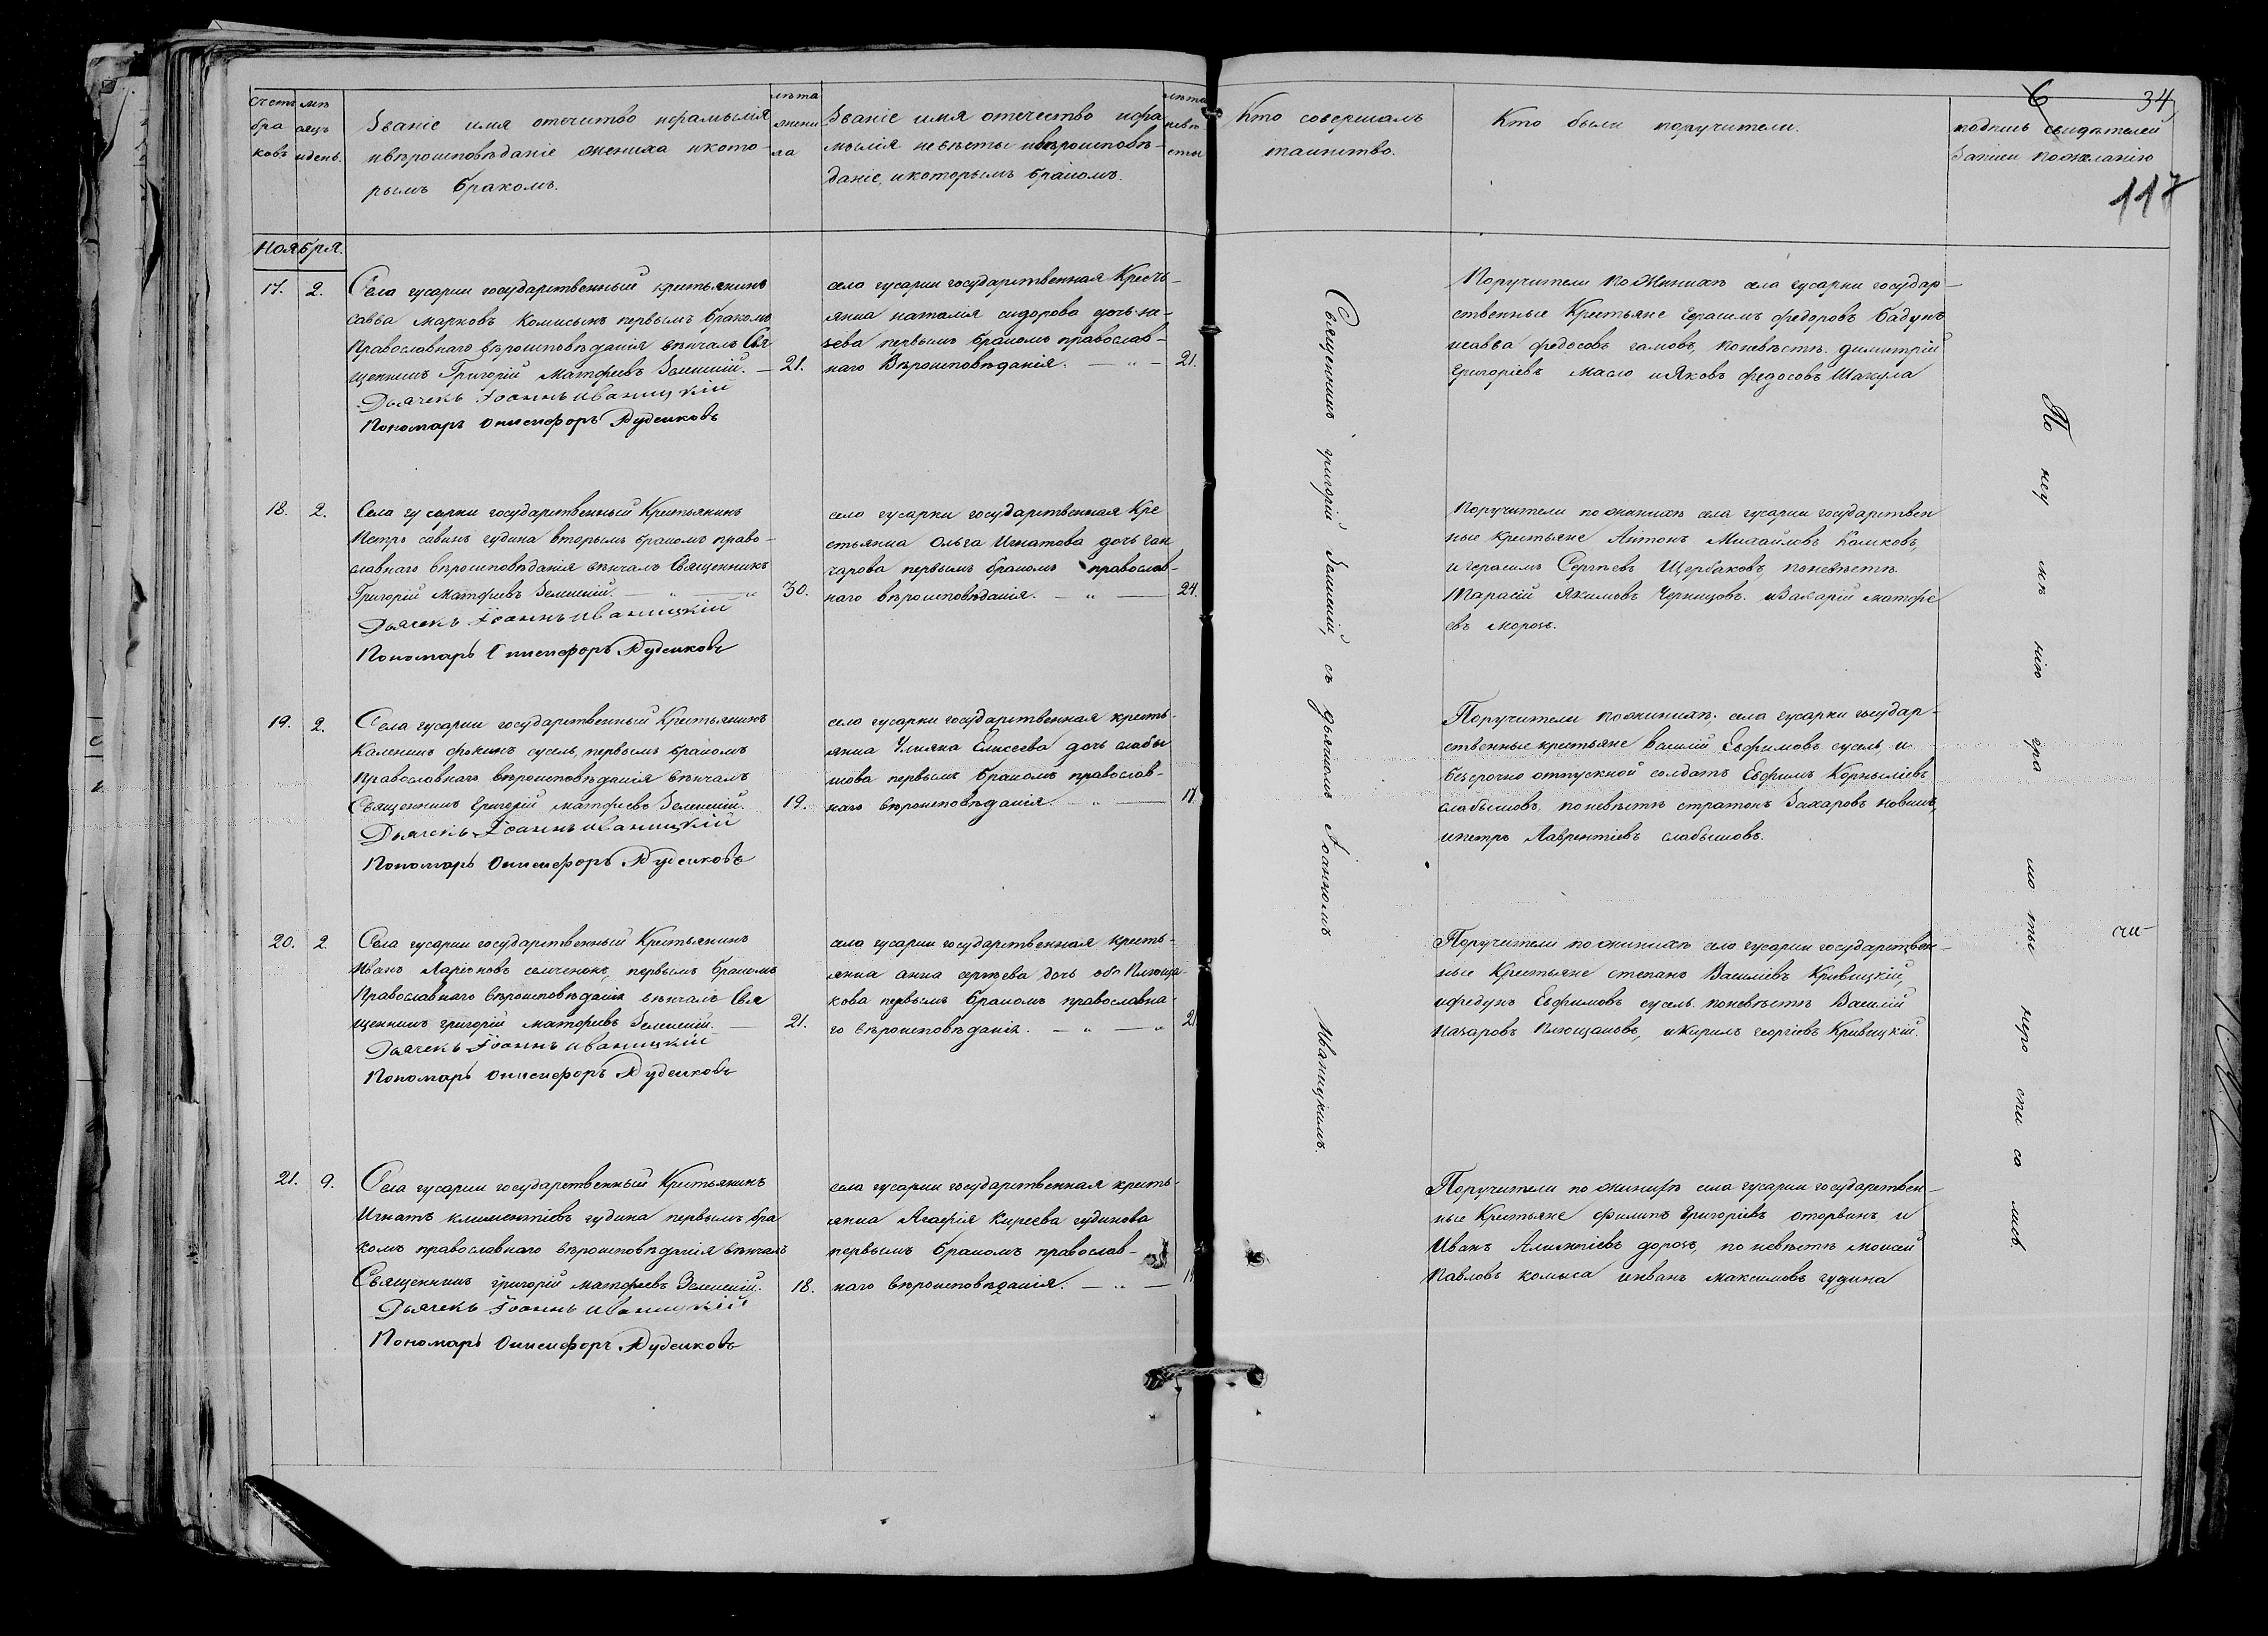 счетъ бра ковъ
мѣ сяцъ идень.
Званіе имя отечитво ифамылія
ивѣроисповѣданіе жениха икото-
рымъ бракомъ.
лѣта жени ха
Званіе имя отечество ифа
мылія невѣсты ивѣроисповѣ-
даніе, икоторымъ бракомъ.
лѣта невѣ сты
Кто совершалъ
таинство.
Кто были поручители.
6 34
подпись свидѣтелей
записи пожеланію
117
Ноября.
17. 2.
Села гусарки государственный крестьянинъ
савва марковъ
первымъ бракомъ
Православнаго вѣроисповѣданія вѣнчалъ Свя
щенникъ Григорій Матфеевъ Зеленскій. — 21.
Дьячекъ Іоаннъ иваницкій
Пономарь Онисифоръ Дудниковъ
села гусарки государственная Кресть-
янка наталія сидорова дочь
первымъ бракомъ православ-
наго Вѣроисповѣданія. — „ — 21.
Поручители Поженихѣ села гусарки государ-
ственные Крестьяне Герасимъ федоровъ бадунъ
исавва федосовъ гамовъ, поневѣстѣ. димитрій
Григоріевъ масло иЯковъ федосовъ Шакула
18. 2.
Села гусарки государственный Крестьянинъ
Петръ савинъ гудина вторымъ бракомъ право-
славнаго вѣроисповѣданія вѣнчалъ Священникъ
Григорій Матфеевъ Зеленскій. — „ — „ 30.
Дьячекъ Іоаннъ иваницкій
Пономарь Онисифоръ Дудниковъ
село гусарки государственная Кре
стьянка Ольга Игнатова дочь ган
чарова первымъ бракомъ православ-
наго вѣроисповѣданія. — „ — 24.
Поручители поженихѣ села гусарки государствен
ные крестьяне Антонъ Михайловъ
и герасимъ Сергѣевъ Щербаковъ, поневѣстѣ.
Тарасій Якимовъ Черницовъ. иЗахарій матфе
евъ морозъ.
19. 2.
Села гусарки государственный Крестьянинъ
Каленикъ фокинъ сусель, первымъ бракомъ
Православнаго вѣроисповѣданія вѣнчалъ
Священникъ Григорій матфеевъ Зеленскій. 19.
Дьячекъ Іоаннъ иваницкій
Пономарь Онисифоръ Дудниковъ
село гусарки государственная кресть-
янка Ульяна Елисеева дочь слабы
шова первымъ бракомъ православ-
наго вѣроисповѣданія. — „ — 17
Поручители поженихѣ; села гусарки государ-
ственные крестьяне василій Евфимовъ сусель, и
безсрочно отпускной солдатъ Евфимъ Корныліевъ
слабышовъ, поневѣстѣ стратонъ Захаровъ новикъ,
ипетръ Лаврентіевъ слабышовъ.
20. 2.
Села гусарки государственный Крестьянинъ
Иванъ Ларіоновъ семченокъ, первымъ бракомъ
Православнаго вѣроисповѣданія вѣнчалъ Свя
щенникъ григорій матфеевъ Зеленскій. — 21.
Дьячекъ Іоаннъ иваницкій
Пономарь Онисифоръ Дудниковъ
села гусарки государственная кресть-
янка анна сергѣева дочь Плюща-
кова первымъ бракомъ православна-
го вѣроисповѣданія. — „ — „ 21
Поручители поженихѣ село гусарки государствен-
ные Крестьяне степанъ Василіевъ Кривицкій,
ифедунъ Евфимовъ сусель. поневѣстѣ Василій
Назаровъ Плющаковъ, иКирилъ георгіевъ Кривицкій.
21. 9.
Села гусарки государственный Крестьянинъ
Игнатъ климентіевъ гудина первымъ бра
комъ православнаго вѣроисповѣданія вѣнчалъ
Священникъ григорій матфеевъ Зеленскій. 18.
Дьячекъ Іоаннъ иваницкій
Пономарь Онисифоръ Дудниковъ
села гусарки государственная кресть-
янка Агафія Киреева гудинова
первымъ бракомъ православ-
наго вѣроисповѣданія. — „ —
Поручители по женихѣ села гусарки государствен-
ные Крестьяне филипъ Григоріевъ оторвинъ, и
Иванъ дорозъ, по невѣстѣ моисей
Павловъ комыса ииванъ максимовъ гудина
Священникъ григорій Зеленскій, съ дьячкомъ Іоанномъ Иваницкимъ.
По неу мѣ нію гра мо ты нерос пи са лись.